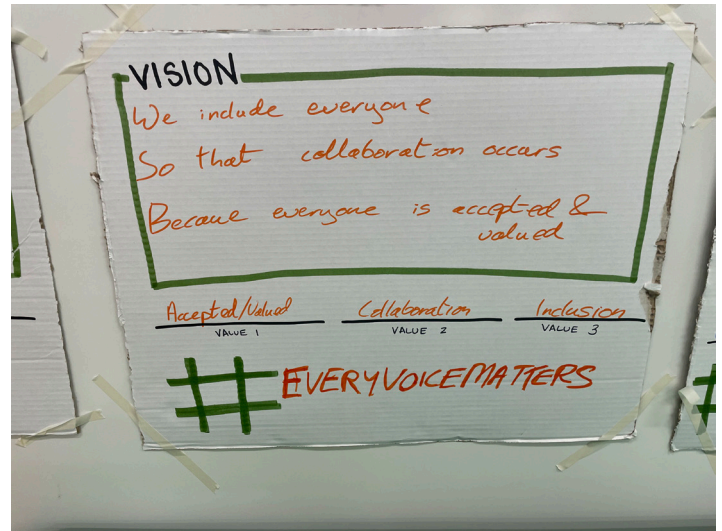 VISION
We include everyone
So that collaboration occurs
Becaue everyone is accepted &
valued
Accepted/Valued Collaboration Inclusion
VALUE 1 VALUE 2 VALUE 3
#EVERYVOICEMATTERS